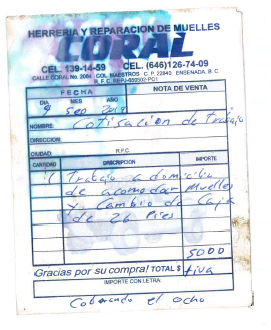 HERRERIA Y REPARACION DE MUELLES
CORAL
CEL. 139-14-59 CEL. (646)126-74-09
CALLE CORAL No. 2084 COL. MAESTROS C.P. 22840 ENSENADA, B.C.
FECHA
NOTA DE VENTA
DIA MES AÑO
9 Sep 2019
NOMBRE: Cotisacion de Trabajo
DIRECCION:
CIUDAD: R.F.C.
CANTIDAD DESCRIPCION IMPORTE
1 Trabajo a domicilio
de acomodar Muelles
y Cambio de Caja
de 26 Pies
5000
¡Gracias por su compra! TOTAL $ +iva
IMPORTE CON LETRA:
Cobrando el ocho